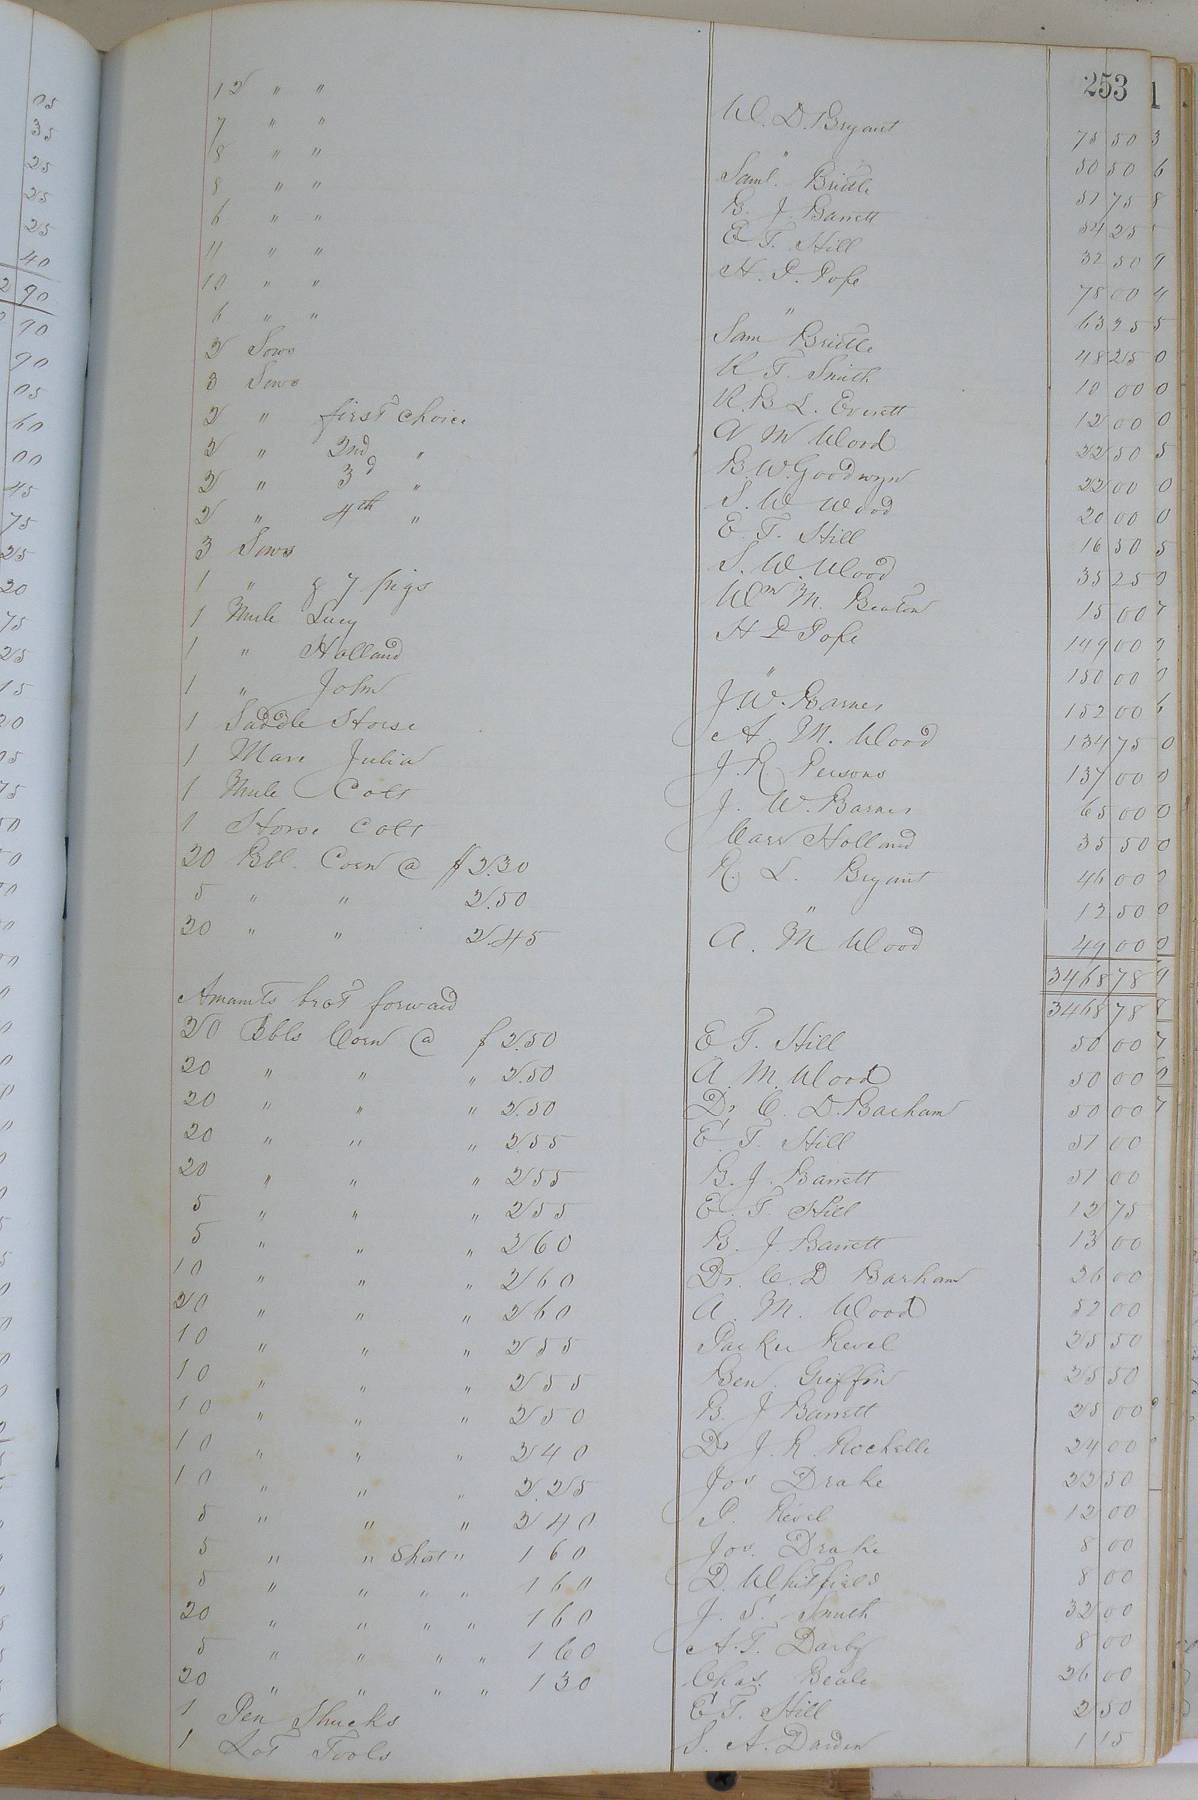 253
12 " " W. D. Bryant 75 50
7 " " " 50 50
8 " " Saml. Bristle 51 75
8 " " B. J. Barrett 54 25
6 " " E T. Hill 32 50
11 " " H. D. Pope 78 00
10 " " " 63 25
6 " " Sam Bristle 48 25
2 Sows R T. Smith 10 00
3 Sows R. B L. Everett 12 00
2 " first choice A M Wood 22 50
2 " 2nd " B. W. Goodwyn 22 00
2 " 3d " S. W Wood 20 00
2 " 4th " E. T. Hill 16 50
3 Sows S. W. Wood 35 25
1 " & 7 pigs Wm M. Beaton 15 00
1 Mule Lucy H D Pope 149 00
1 " Holland " 150 00
1 " John J. W. Barnes 152 00
1 Saddle Horse A. M. Wood 134 75
1 Mare Julia J. R Persons 137 00
1 Mule Colt J. W. Barnes 65 00
1 Horse Colt Carr Holland 35 50
20 Bbl. Corn @ $2.30 R. L. Bryant 46 00
5 " " 2.50 " 12 50
20 " " 2.45 A. M Wood 49 00
3468 78
Amounts brot forward 3468 78
20 Bbls Corn @ $2.50 E T. Hill 50 00
20 " " " 2.50 A. M. Wood 50 00
20 " " " 2.50 Dr C. D. Barham 50 00
20 " " " 2 55 E. T. Hill 51 00
20 " " " 2 55 B. J. Barrett 51 00
5 " " " 2 55 E. T. Hill 12 75
5 " " " 2 60 B. J Barrett 13 00
10 " " " 2 60 Dr. C. D Barham 26 00
20 " " " 2 60 A. M. Wood 52 00
10 " " " 2 55 Parker Revel 25 50
10 " " " 2 55 Ben. Griffin 25 50
10 " " " 2 50 B. J Barrett 25 00
10 " " " 2 40 Dr J. R. Rochelle 24 00
10 " " " 2.25 Jos Drake 22 50
5 " " " 2 40 P. Revel 12 00
5 " " Short " 1 60 Jos. Drake 8 00
5 " " " " 1 60 D. Whitfield 8 00
20 " " " " 1 60 J. S. Smith 32 00
5 " " " " 1 60 A. T. Darby 8 00
20 " " " " 1 30 Chas. Beale 26 00
1 Pen Shucks E T. Hill 2 50
1 Lot Tools S. A. Darden 1 15